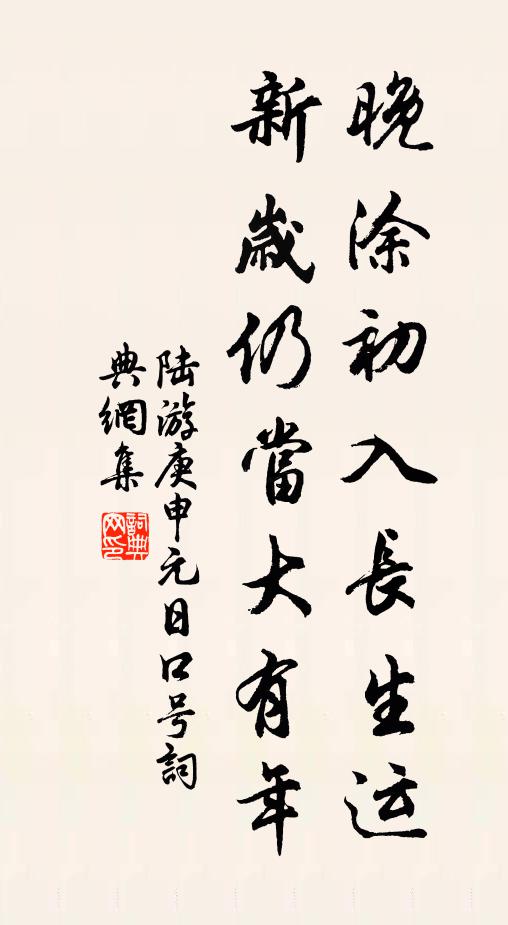 晚涂初入長生运
新歲仍當大有年
陆游庚申元日口号詞
典網集
詞典網印